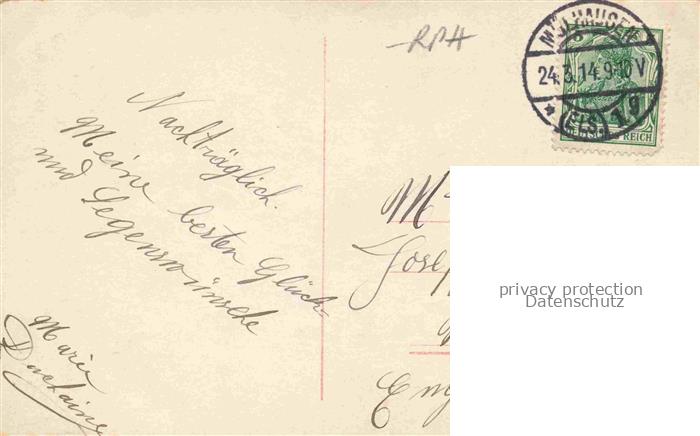 RPH
MÜLHAUSEN
24.3.14.9-10V
* (ELS.) 1g
DEUTSCHES REICH
Nachträglich.
Meine besten Glück-
und Segenswünsche
Marie
M
Josep
Eng
privacy protection
Datenschutz